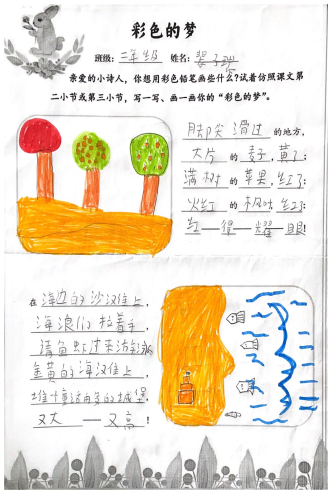 彩色的梦
班级: 二年级 姓名:
亲爱的小诗人，你想用彩色铅笔画些什么?试着仿照课文第
二小节或第三小节，写一写、画一画你的“彩色的梦”。
脚尖滑过的地方，
大片的麦子，黄了；
满树的苹果，红了；
火红的枫叶，红了；
红——得——耀——眼！
在海边的沙滩上，
海浪们拉着手，
请鱼虾过来
金黄的海滩上，
堆 的城堡
又大——又高！